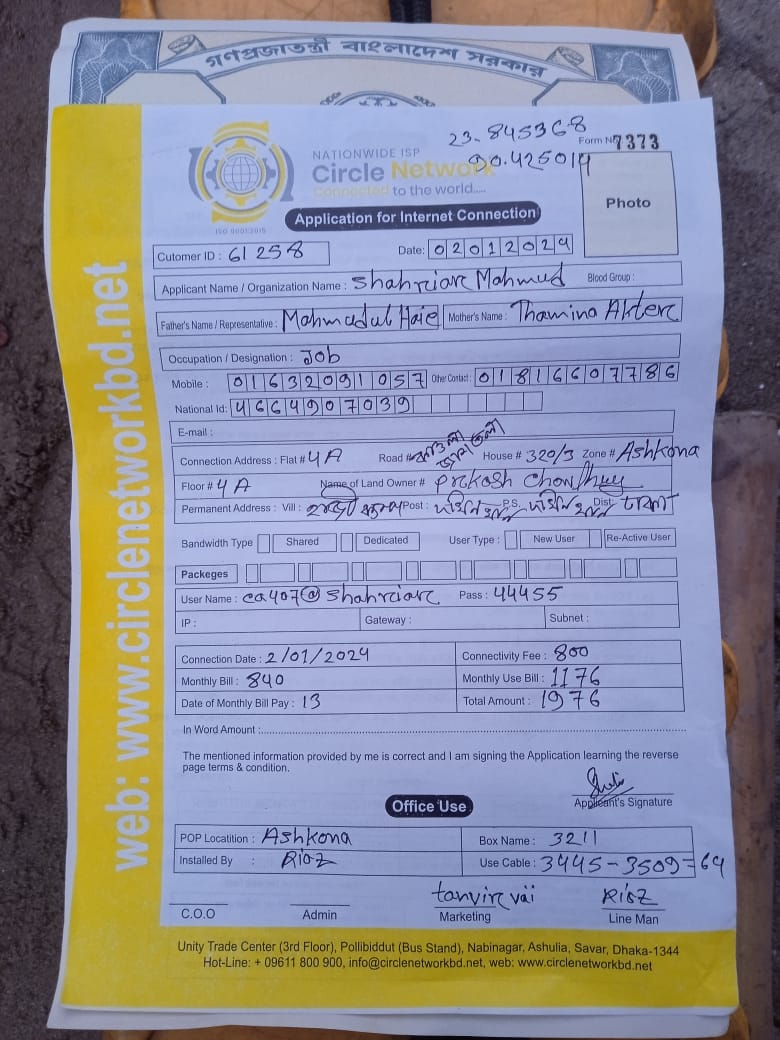 গণপ্রজাতন্ত্রী বাংলাদেশ সরকার
23.845368
Form No 7373
90.425019
NATIONWIDE ISP
Circle Network
Connected to the world.....
ISO 9001:2015
Photo
Application for Internet Connection
Cutomer ID : 61258 Date: 02012024
Applicant Name / Organization Name : Shahriar Mahmud Blood Group :
Father's Name / Representative : Mahmudul Haie Mother's Name : Thamina Akter
Occupation / Designation : Job
Mobile : 01632091057 Other Contact : 01816607786
National Id: 4664907039
E-mail :
Connection Address : Flat # 4A Road # House # 320/3 Zone # Ashkona
Floor # 4A Name of Land Owner # Prokash Chowdhuy
Permanent Address : Vill : Post : P.S. Dist: ঢাকা
Bandwidth Type Shared Dedicated User Type : New User Re-Active User
Packeges
User Name : ca407@shahriar Pass : 44455
IP : Gateway : Subnet :
Connection Date : 2/01/2024 Connectivity Fee : 800
Monthly Bill : 840 Monthly Use Bill : 1176
Date of Monthly Bill Pay : 13 Total Amount : 1976
In Word Amount :
The mentioned information provided by me is correct and I am signing the Application learning the reverse
page terms & condition.
Applicant's Signature
Office Use
POP Locatition : Ashkona Box Name : 3211
Installed By : Rioz Use Cable : 3445-3509=64
tanvir vai Rioz
C.O.O Admin Marketing Line Man
Unity Trade Center (3rd Floor), Pollibiddut (Bus Stand), Nabinagar, Ashulia, Savar, Dhaka-1344
Hot-Line: + 09611 800 900, info@circlenetworkbd.net, web: www.circlenetworkbd.net
web: www.circlenetworkbd.net